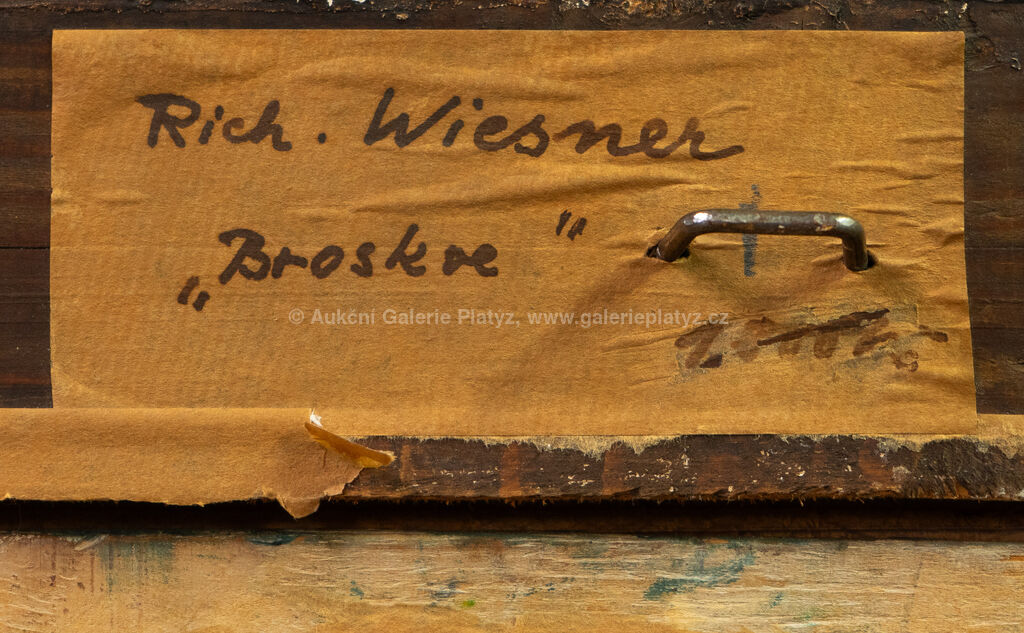 Rich. Wiesner
„Broskve"
© Aukční Galerie Platýz, www.galerieplatyz.cz